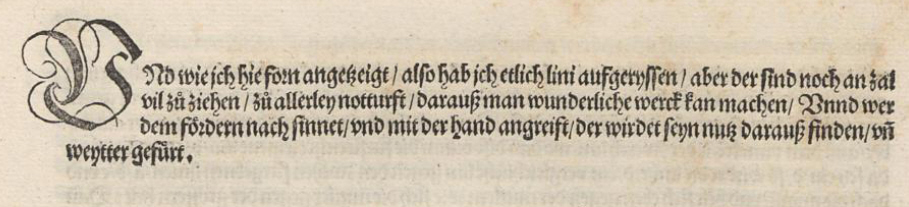 VNd wie jch hie forn angetzeigt / also hab jch etlich lini aufgeryssen / aber der sind noch an zal
vil zů ziehen / zů allerley notturft / darauß man wunderliche werck kan machen / Vnnd wer
dem fördern nach sinnet / vnd mit der hand angreift / der wirdet seyn nutz darauß finden / vñ
weytter gefürt.